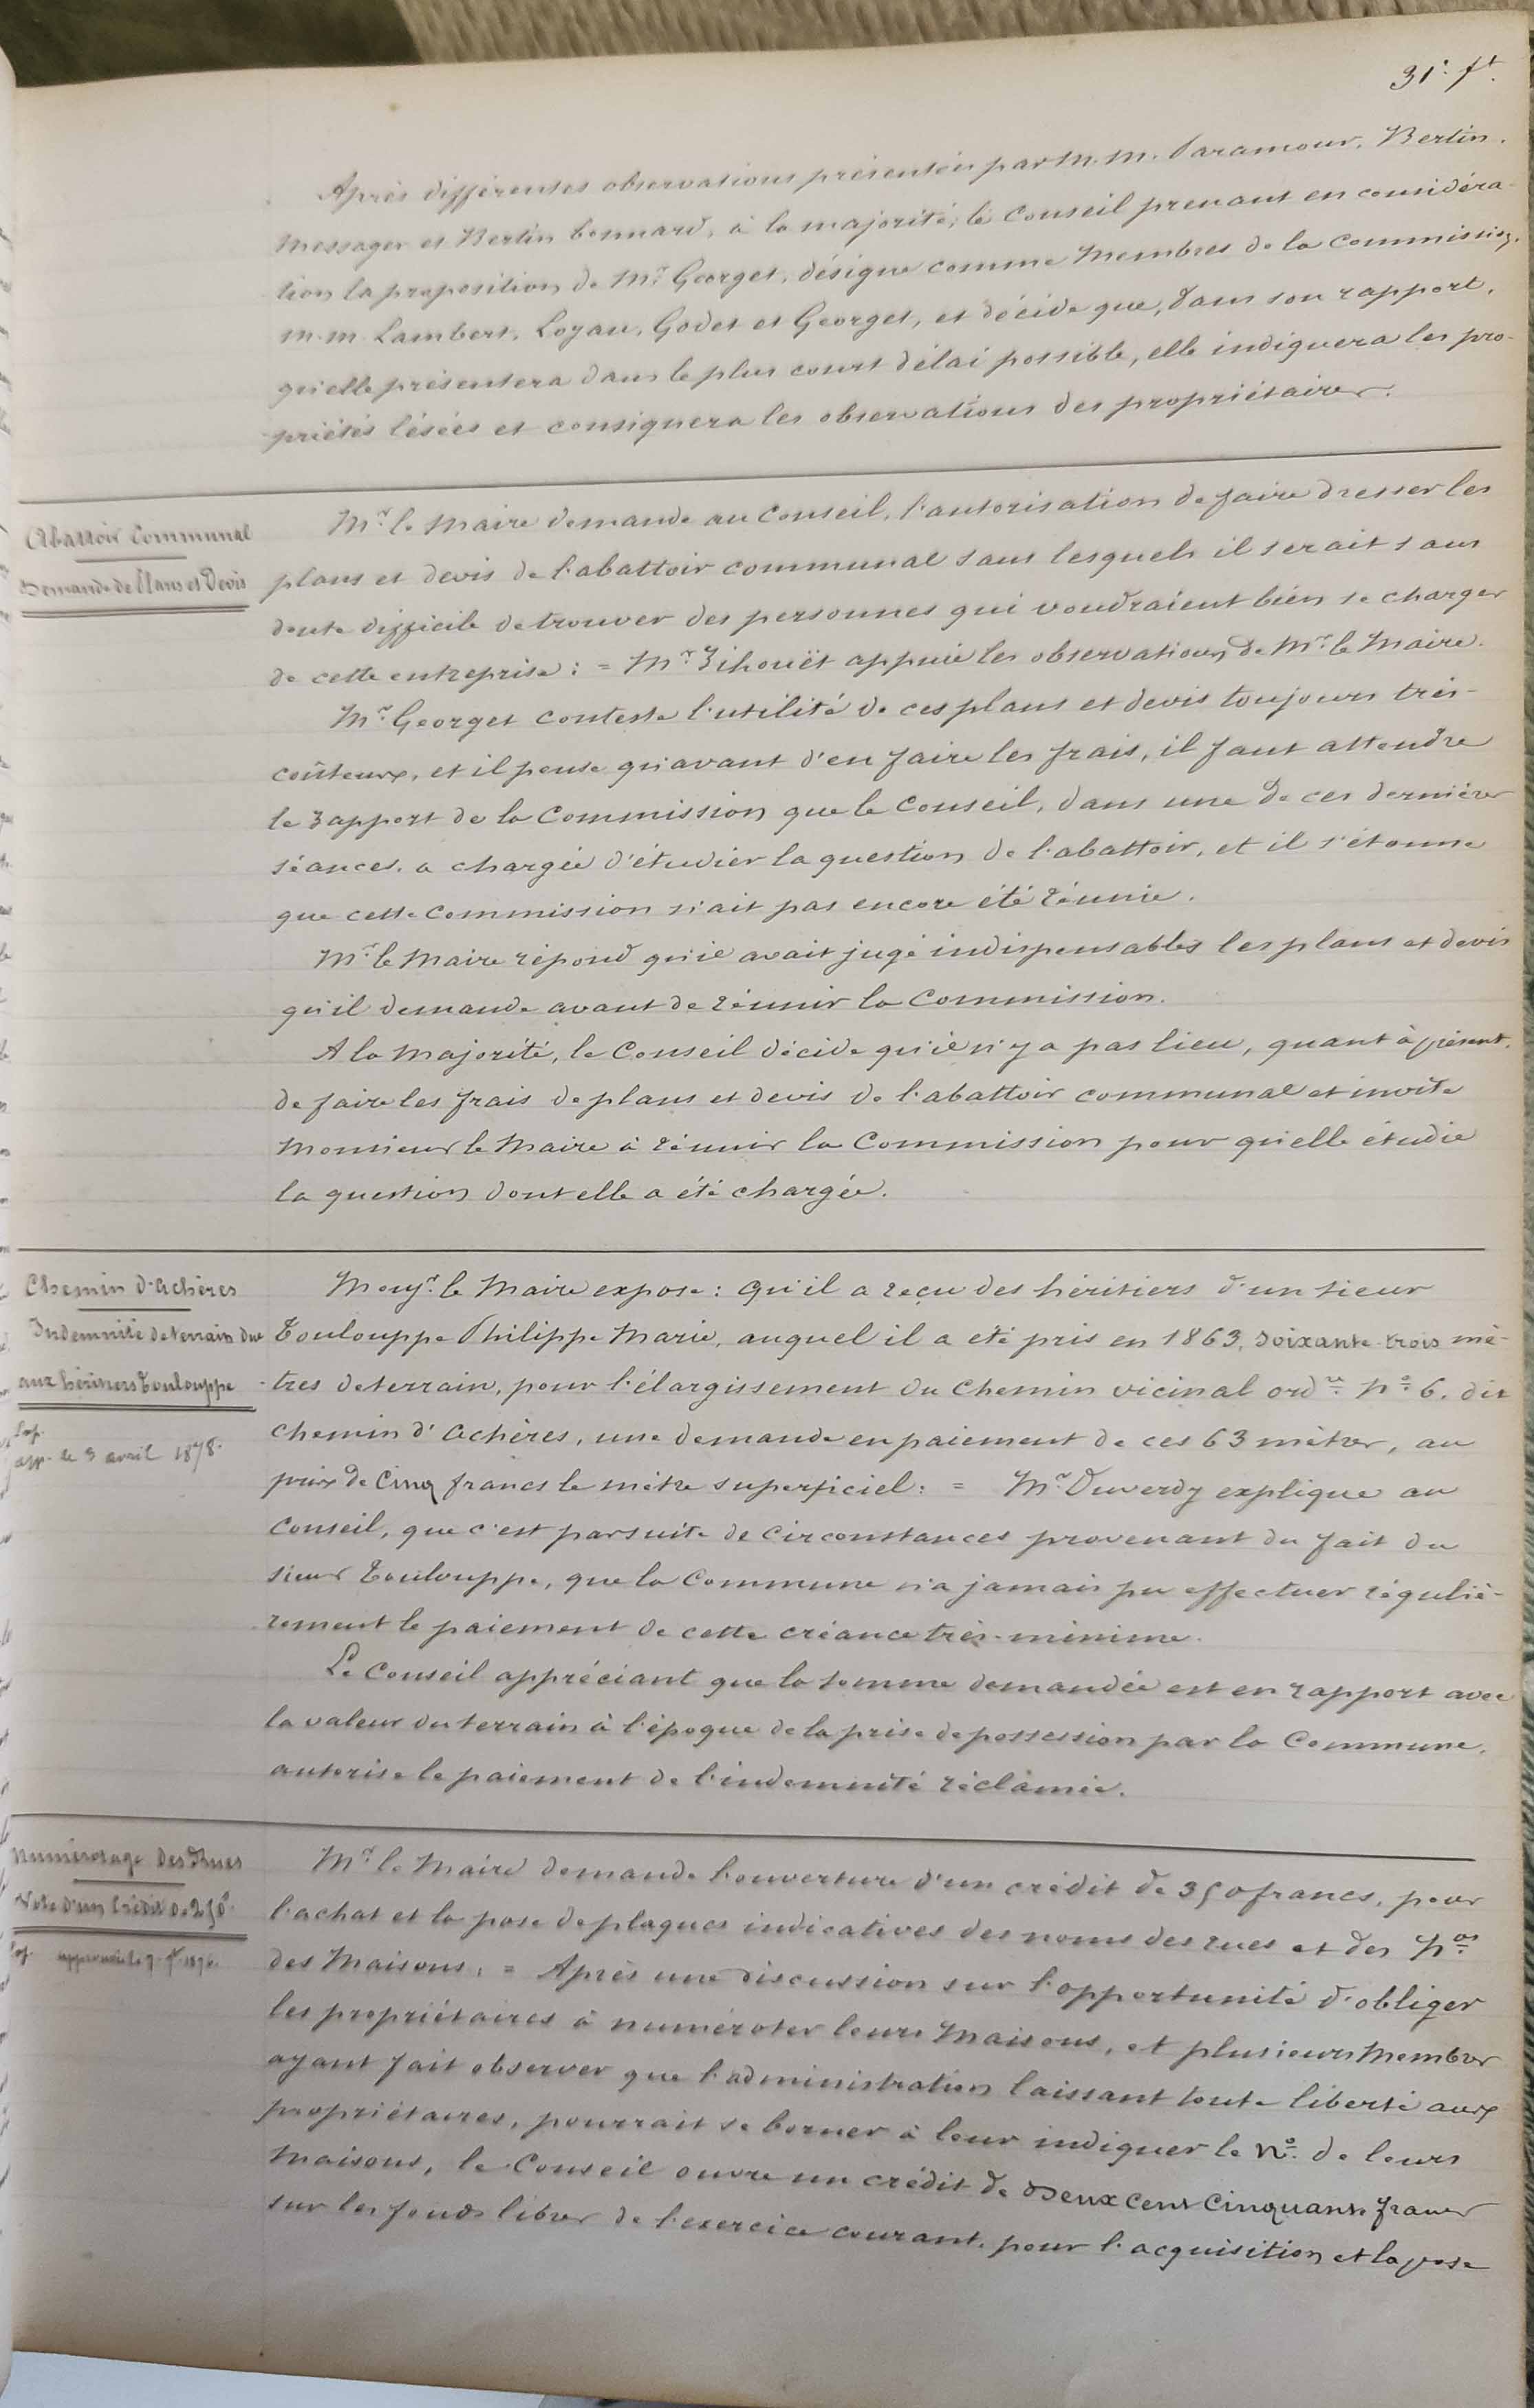 31e. ft.
Après différentes observations présentées par M.M. Paramour, Bertin.
Messager et Bertin bonnard, à la majorité, le Conseil prenant en considéra-
tion la proposition de Mr. Georget, désigne comme Membres de la Commission,
M.M. Lambert, Loyau, Godet et Georget, et décide que, dans son rapport,
qu'elle présentera dans le plus court délai possible, elle indiquera les pro-
priétés lésées et consignera les observations des propriétaires.
Abattoir Communal
Demande de Plans et Devis
Mr. le Maire demande au Conseil, l'autorisation de faire dresser les
plans et devis de l'abattoir communal sans lesquels il serait sans
doute difficile de trouver des personnes qui voudraient bien se charger
de cette entreprise : = Mr. appuie les observations de Mr. le Maire.
Mr. Georget conteste l'utilité de ces plans et devis toujours très-
coûteux, et il pense qu'avant d'en faire les frais, il faut attendre
le rapport de la Commission que le Conseil, dans une de ces dernières
séances, a chargée d'étudier la question de l'abattoir, et il s'étonne
que cette commission n'ait pas encore été réunie.
Mr. le Maire répond qu'il avait jugé indispensables les plans et devis
qu'il demande avant de réunir la Commission.
A la Majorité, le Conseil décide qu'il n'y a pas lieu, quant à présent,
de faire les frais de plans et devis de l'abattoir communal et invite
Monsieur le Maire à réunir la Commission pour qu'elle étudie
la question dont elle a été chargée.
Chemin d'Achères
Indemnité de terrain due
aux héritiers Toulouppe
app. le 3 avril 1878.
Monsr. le Maire expose : qu'il a reçu des héritiers d'un sieur
Toulouppe Philippe Marie, auquel il a été pris en 1863, soixante-trois mè-
tres de terrain, pour l'élargissement du chemin vicinal ordre. No. 6. dit
chemin d'Achères, une demande en paiement de ces 63 mètres, au
prix de Cinq francs le mètre superficiel : = Mr. Duverdy explique au
Conseil, que c'est par suite de circonstances provenant du fait du
sieur Toulouppe, que la Commune n'a jamais pu effectuer réguliè-
rement le paiement de cette créance très-minime.
Le Conseil appréciant que la somme demandée est en rapport avec
la valeur du terrain à l'époque de la prise de possession par la Commune,
autorise le paiement de l'indemnité réclamée.
Numérotage des Rues
Vote d'un Crédit de 250f.
Mr. le Maire demande l'ouverture d'un crédit de 350 francs, pour
l'achat et la pose de plaques indicatives des noms des rues et des Nos.
des Maisons. = Après une discussion sur l'opportunité d'obliger
les propriétaires à numéroter leurs Maisons, et plusieurs Membres
ayant fait observer que l'administration laissant toute liberté aux
propriétaires, pourrait se borner à leur indiquer le No. de leurs
Maisons, le Conseil ouvre un crédit de Deux Cent Cinquante francs
sur les fonds libres de l'exercice courant, pour l'acquisition et la pose